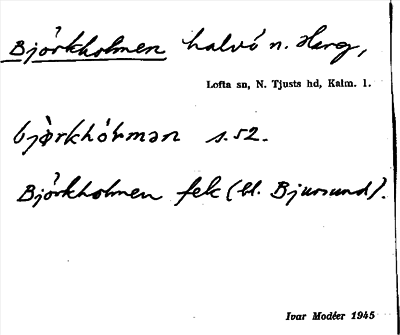 Björkholmen halvö n. Harg,
Lofta sn, N. Tjusts hd, Kalm. l.
s. 52.
Björkholmen fek (bl. Bjursund).
Ivar Modéer 1945